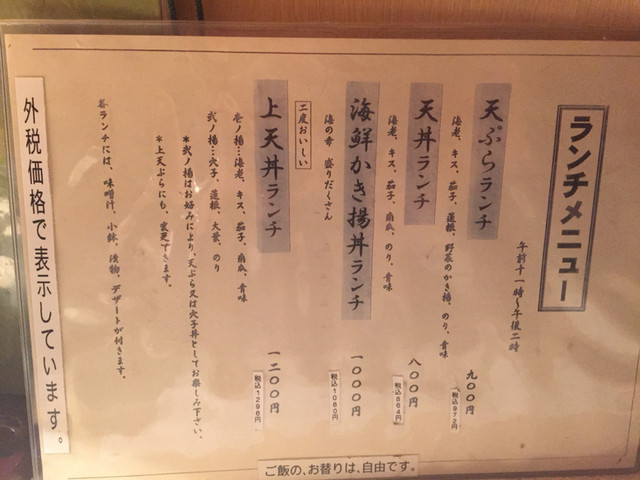 ランチメニュー
午前十一時〜午後二時
天ぷらランチ 九〇〇円
税込972円
海老、キス、茄子、蓮根、野菜のかき揚、のり、青味
天丼ランチ 八〇〇円
税込864円
海老、キス、茄子、南瓜、のり、青味
海鮮かき揚丼ランチ 一〇〇〇円
税込1080円
海の幸 盛りだくさん
二度おいしい
上天丼ランチ 一二〇〇円
税込1296円
壱ノ揚…海老、キス、茄子、南瓜、青味
弐ノ揚…穴子、蓮根、大葉、のり
*弐ノ揚はお好みにより、天ぷら又は穴子丼としてお楽しみ下さい。
*上天ぷらにも、変更できます。
各ランチには、味噌汁、小鉢、漬物、デザートが付きます。
外税価格で表示しています。
ご飯の、お替りは、自由です。